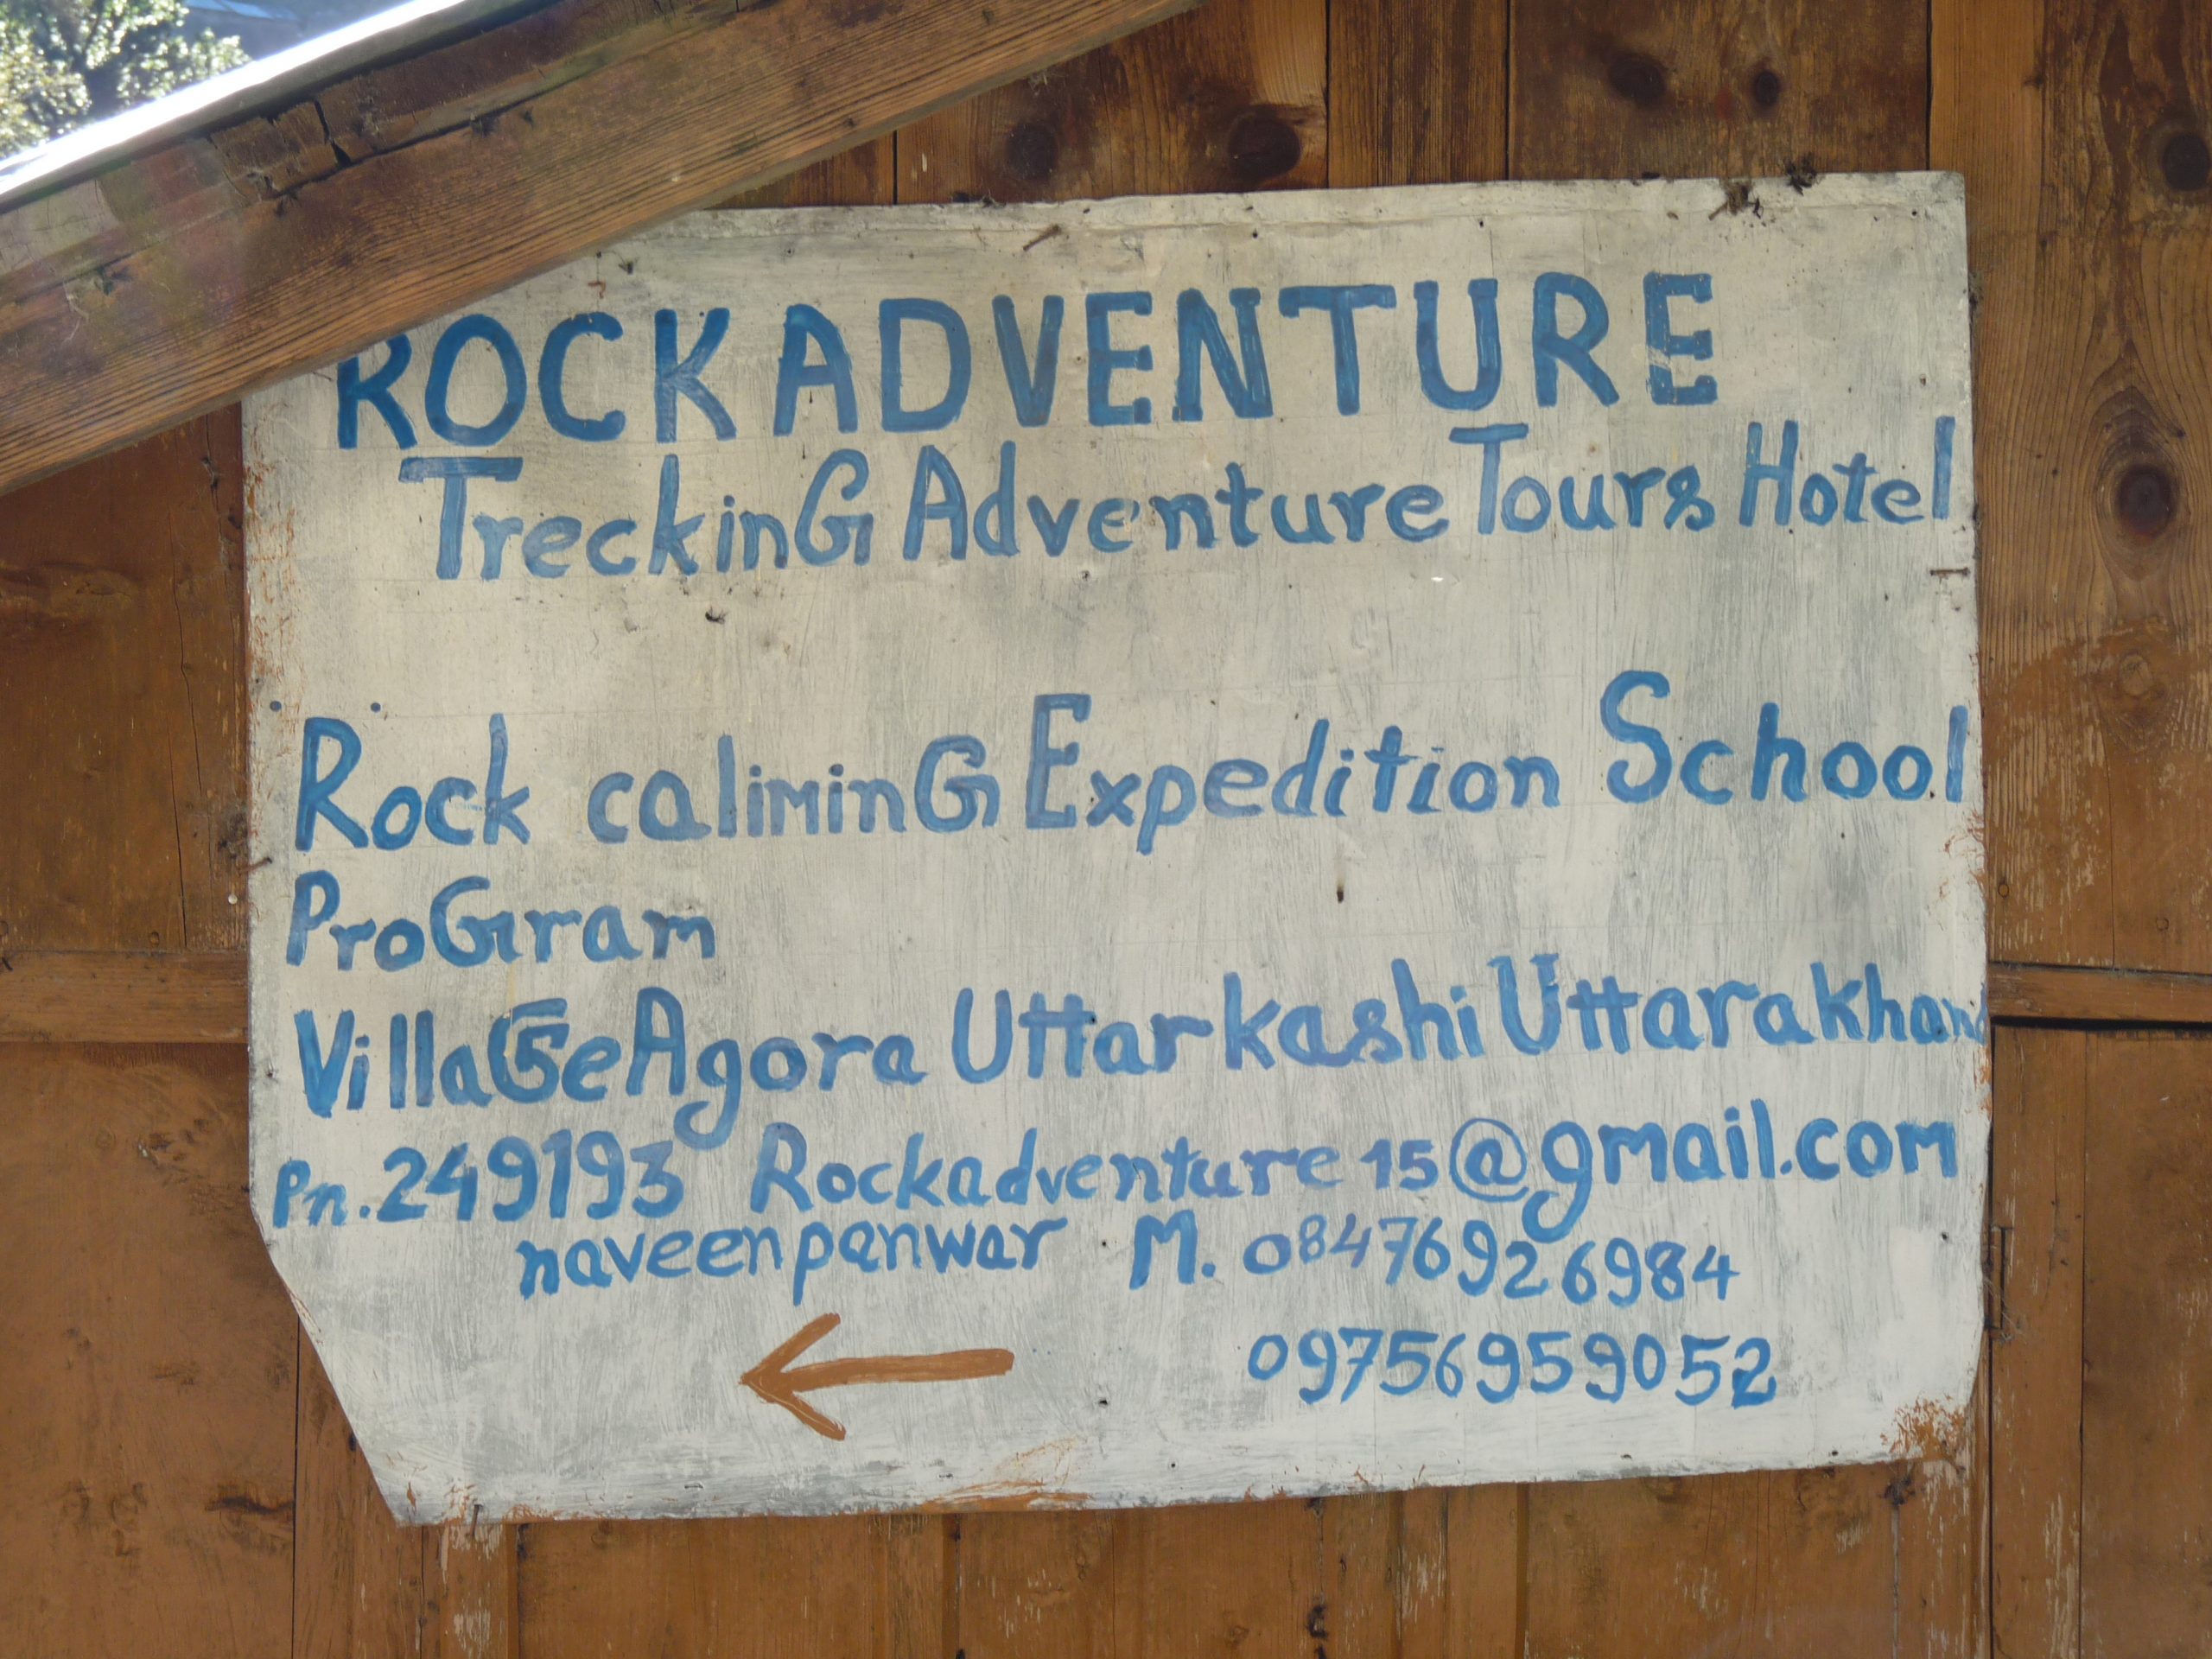 ROCK ADVENTURE
TreckinG Adventure Tours Hotel
Rock caliminG Expedition School
ProGram
VillaGe Agora Uttarkashi Uttarakhand
Pn. 249193 Rockadventure15@gmail.com
naveen panwar M. 08476926984
09756959052